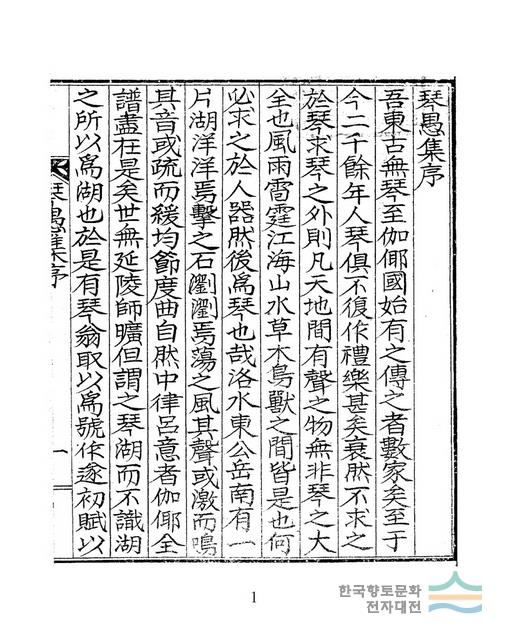 琴愚集序
吾東古無琴至伽倻國始有之傳之者數家矣至于
今二千餘年人琴俱不復作禮樂甚矣衰然不求之
於琴求琴之外則凡天地間有聲之物無非琴之大
全也風雨雷霆江海山水草木鳥獸之間皆是也何
必求之於人器然後爲琴也哉洛水東公岳南有一
片湖洋洋焉擊之石瀏瀏焉蕩之風其聲或激而鳴
其音或疏而緩均節度曲自然中律呂意者伽倻全
譜盡在是矣世無延陵師曠但謂之琴湖而不識湖
之所以爲湖也於是有琴翁取以爲號作遂初賦以
琴愚集序
一
1
한국향토문화
전자대전